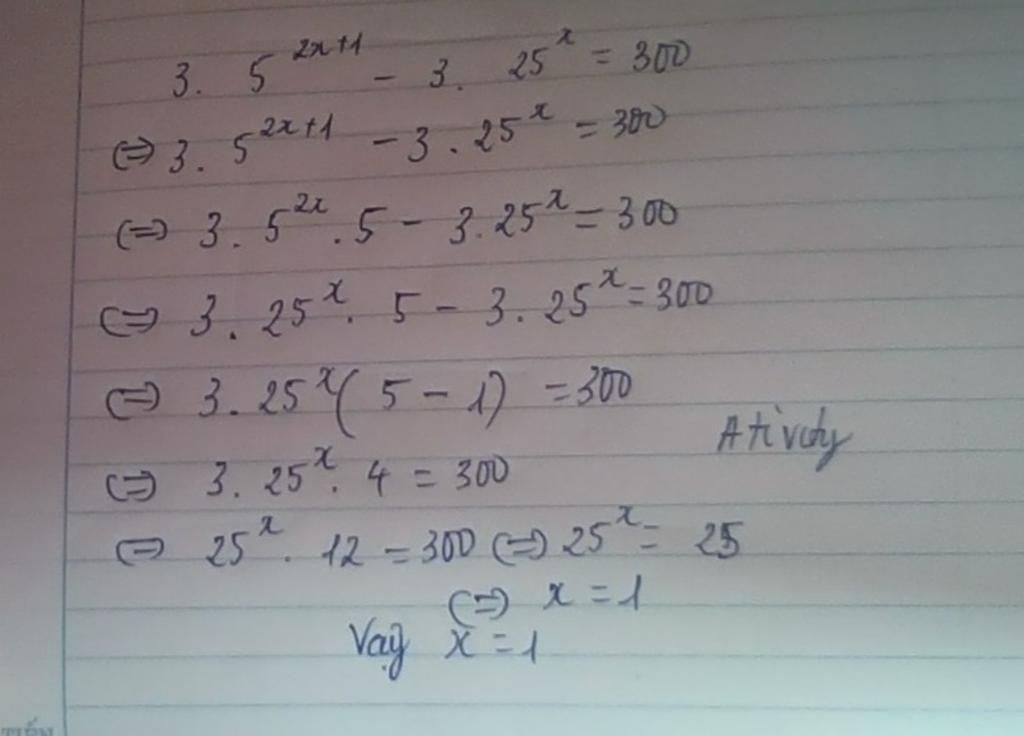 3. 5^{2x+1} - 3. 25^x = 300
⇔ 3. 5^{2x+1} - 3. 25^x = 300
⇔ 3. 5^{2x} . 5 - 3. 25^x = 300
⇔ 3. 25^x. 5 - 3. 25^x = 300
⇔ 3. 25^x( 5 - 1) = 300
Ativdy
⇔ 3. 25^x. 4 = 300
⇔ 25^x. 12 = 300 ⇔ 25^x = 25
⇔ x = 1
Vaỵ̃ x = 1